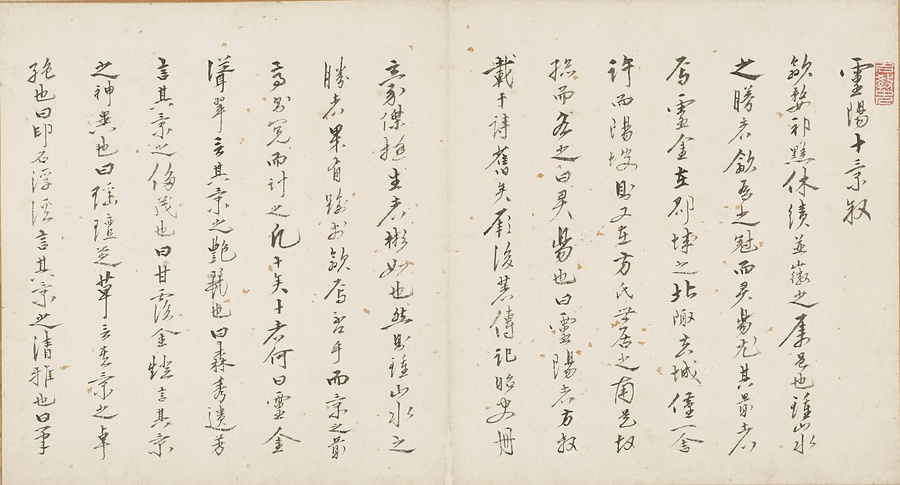 靈陽十景敘
歙婺祁黟休績並徽之屬邑也鍾山水
之勝者歙為之冠而靈陽尤其最者
焉靈金在郡城之北陬去城僅一舍
許而陽坡則又在方氏世居之南是故
總而名之曰靈陽也曰靈陽者方敘
載于詩舊矣厥後其傳記昭史冊
豪傑挺生者彬如也然則鍾山水之
勝者果有踰于歙焉否乎而景之最
高前冠而計之凡十矣十者何曰靈金
聳翠言其景之艷麗也曰森秀遺芳
言其景之侈茂也曰甘露金燈言其景
之神異也曰瑤壇芝草言其景之卓
絕也曰印石浮溪言其景之清雅也曰筆